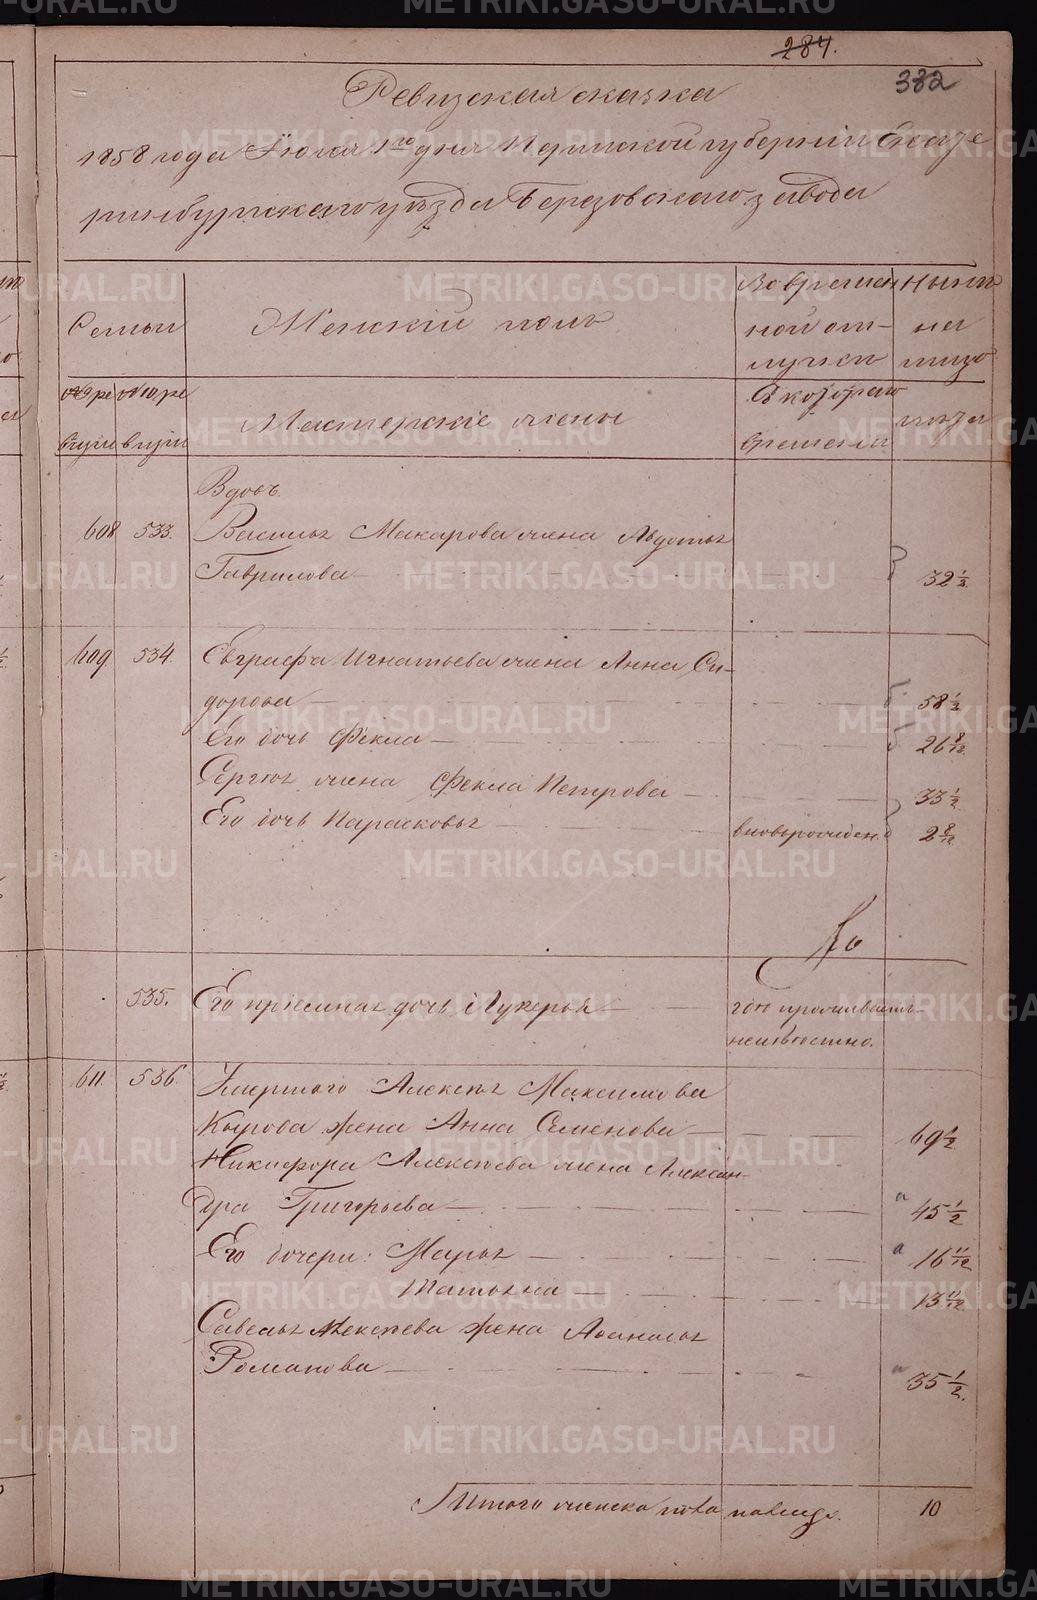 284.
332
Ревизская сказка
1858 года Июля 1го дня Пермской губернии Екате
ринбургскаго уѣзда Березовскаго завода
Семьи
Женскій полъ
Во времен
ной от-
лучкѣ
Нынѣ
на
лицо
№ 9 ре
визіи
№ 10 ре
визіи
Мастерскіе жены
Съ котораго
времени
лѣта
Вдовъ
608 533. Василья Макарова жена Авдотья
Гаврилова 32 1/2
609 534. Евграфа Игнатьева жена Анна Си-
дорова 58 1/2
Его дочь Фекла 26 8/12
Сергѣя жена Фекла Петрова 33 1/2
Его дочь Парасковья вновьрожден. 2 8/12
535. Его приемная дочь Лукерья гдѣ проживаетъ
неизвѣстно.
611. 536. Умершаго Алексѣя Максимова
жена Анна Семенова 69 1/2
Никифора Алексѣева жена Алексан-
дра Григорьева 45 1/2
Его дочери: Марья 16 11/12
Татьяна 13 11/12
Савелья Алексѣева жена Афанасья
Романова 35 1/2
Итого женска пола налицо. 10
METRIKI.GASO-URAL.RU